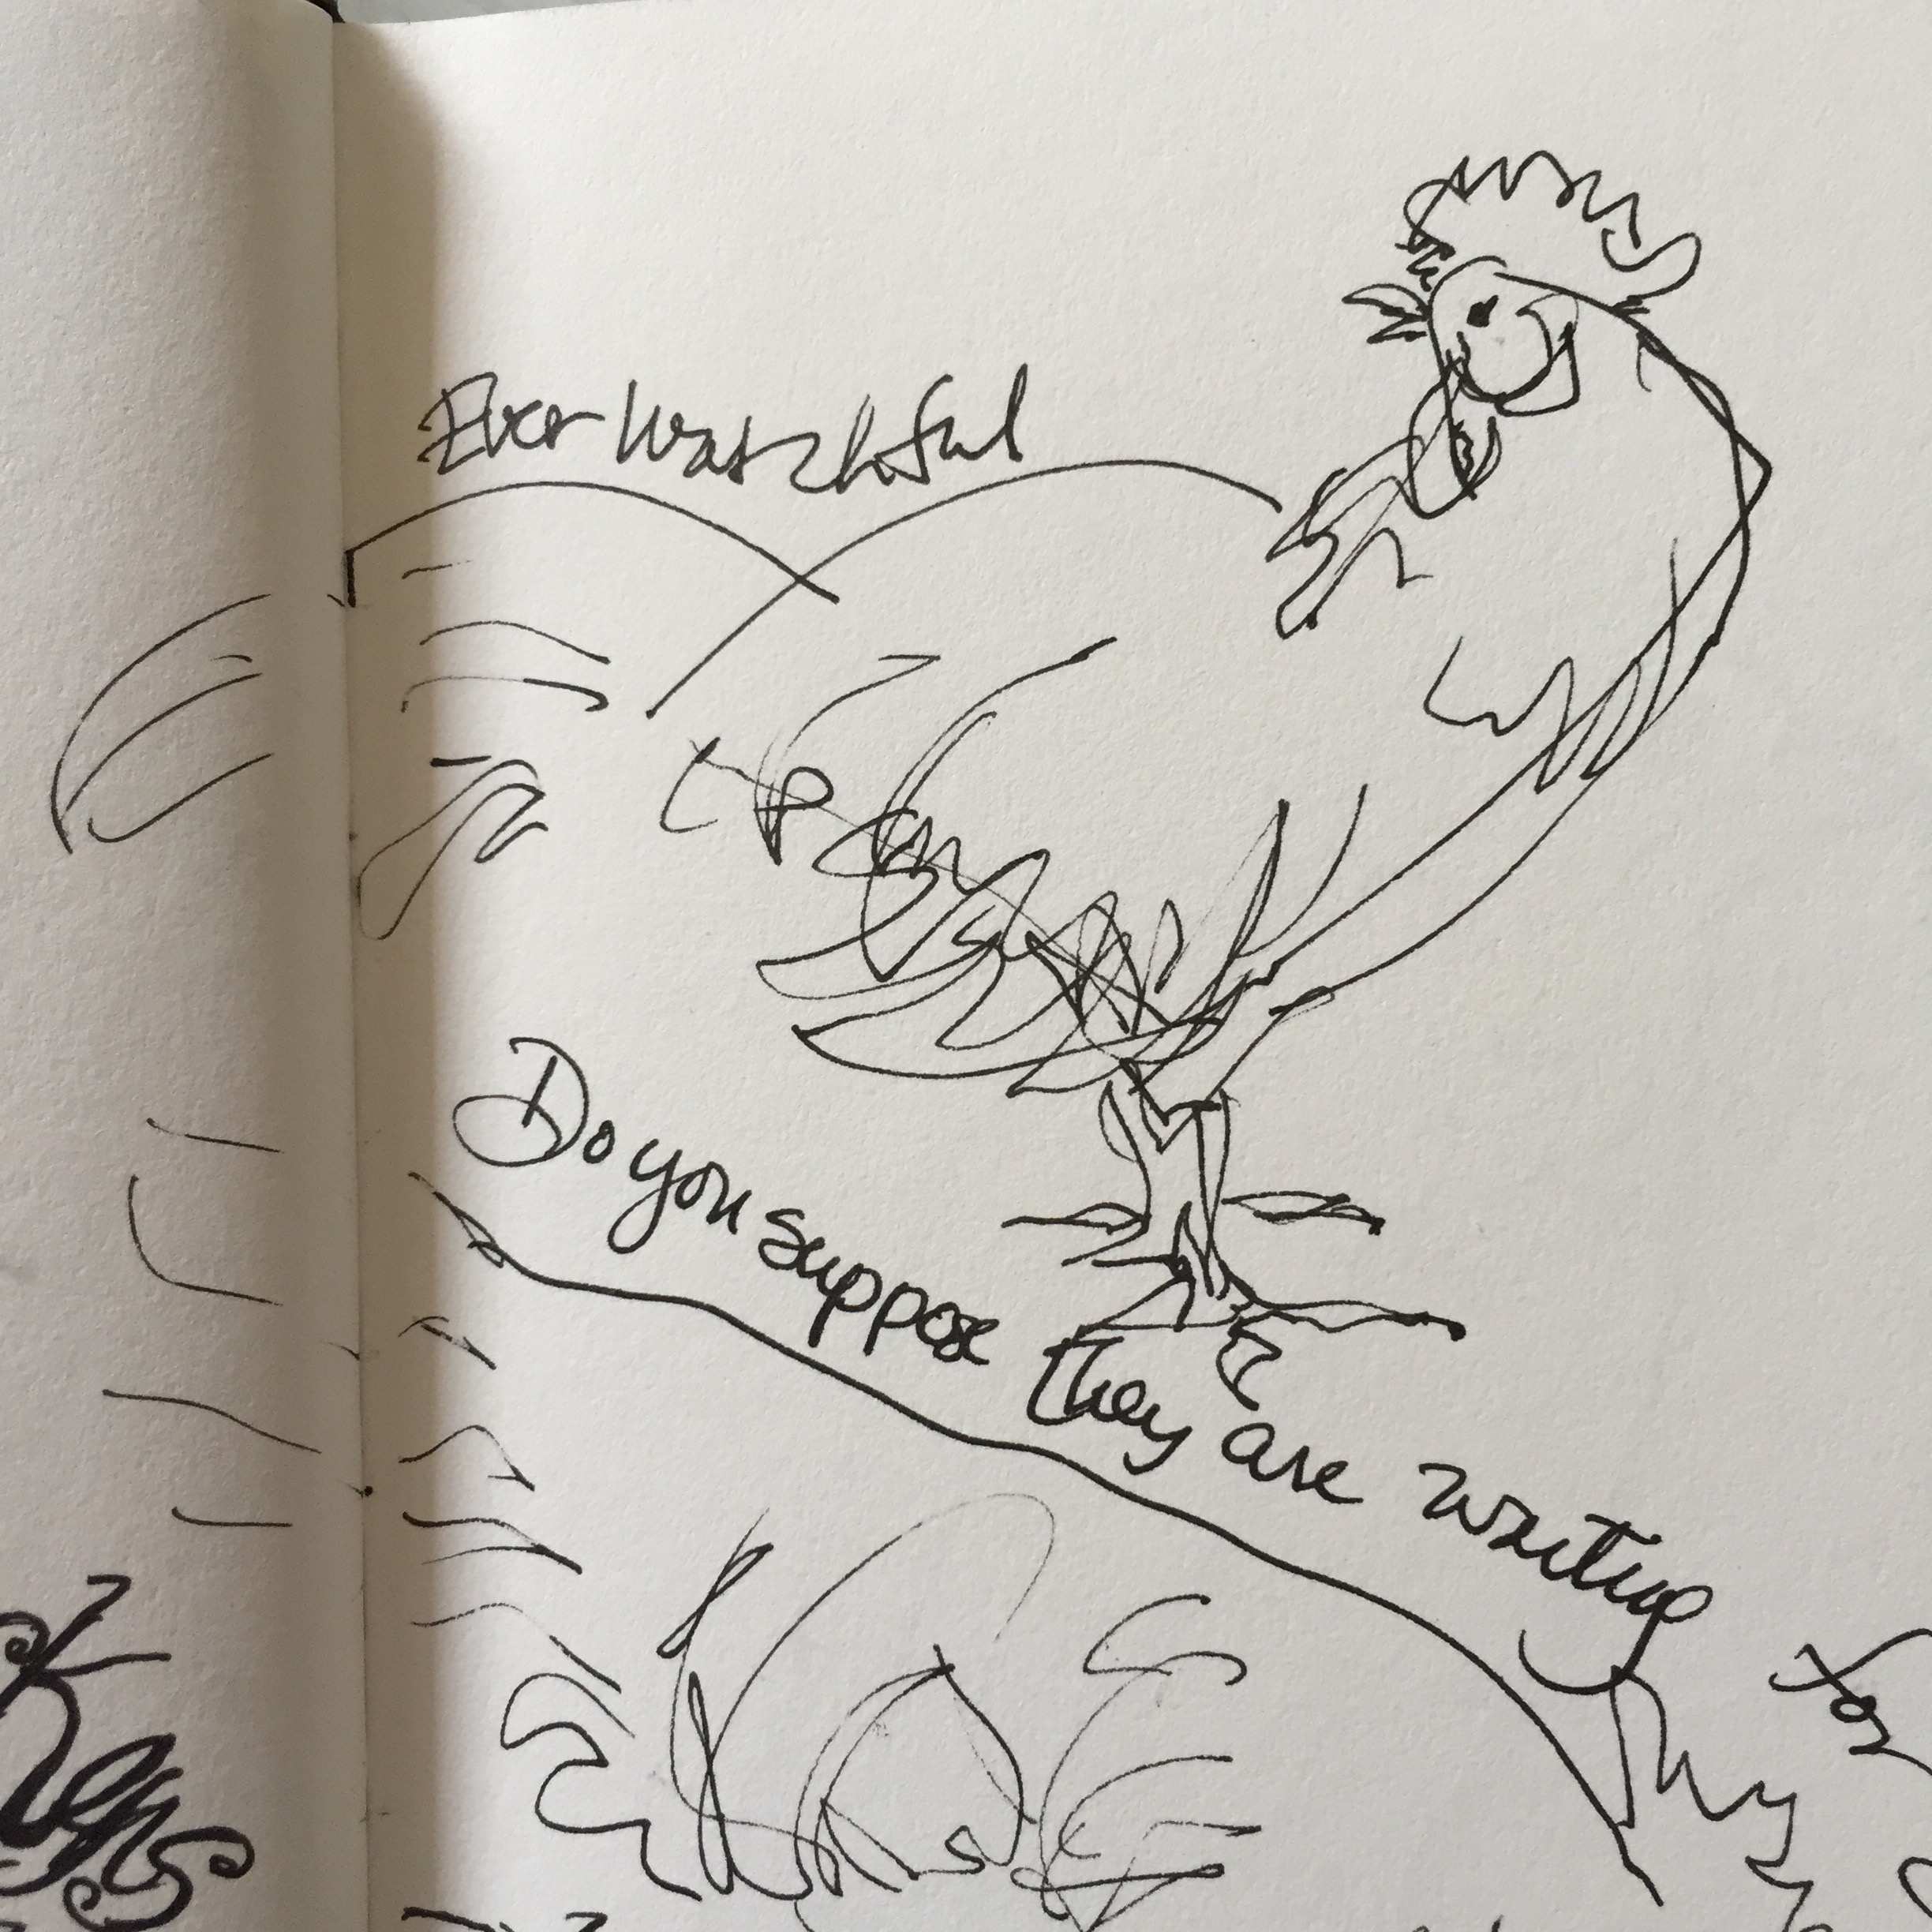 Ever Watchful
Do you suppose they are waiting for